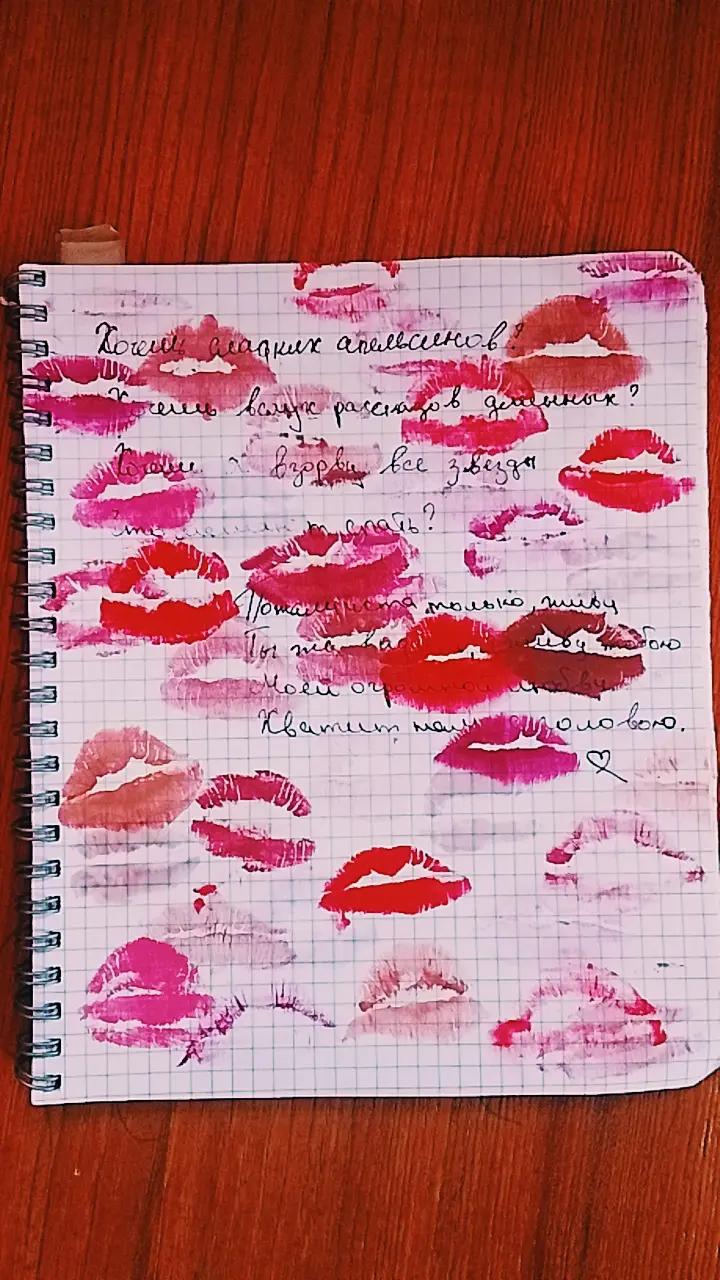 Хочешь сладких апельсинов?
Хочешь вслух рассказов длинных?
Хочешь я взорву все звёзды
что мешают спать?
Пожалуйста только, живи
Ты же живу тобою
Моей огромной любви
Хватит нам с головою.